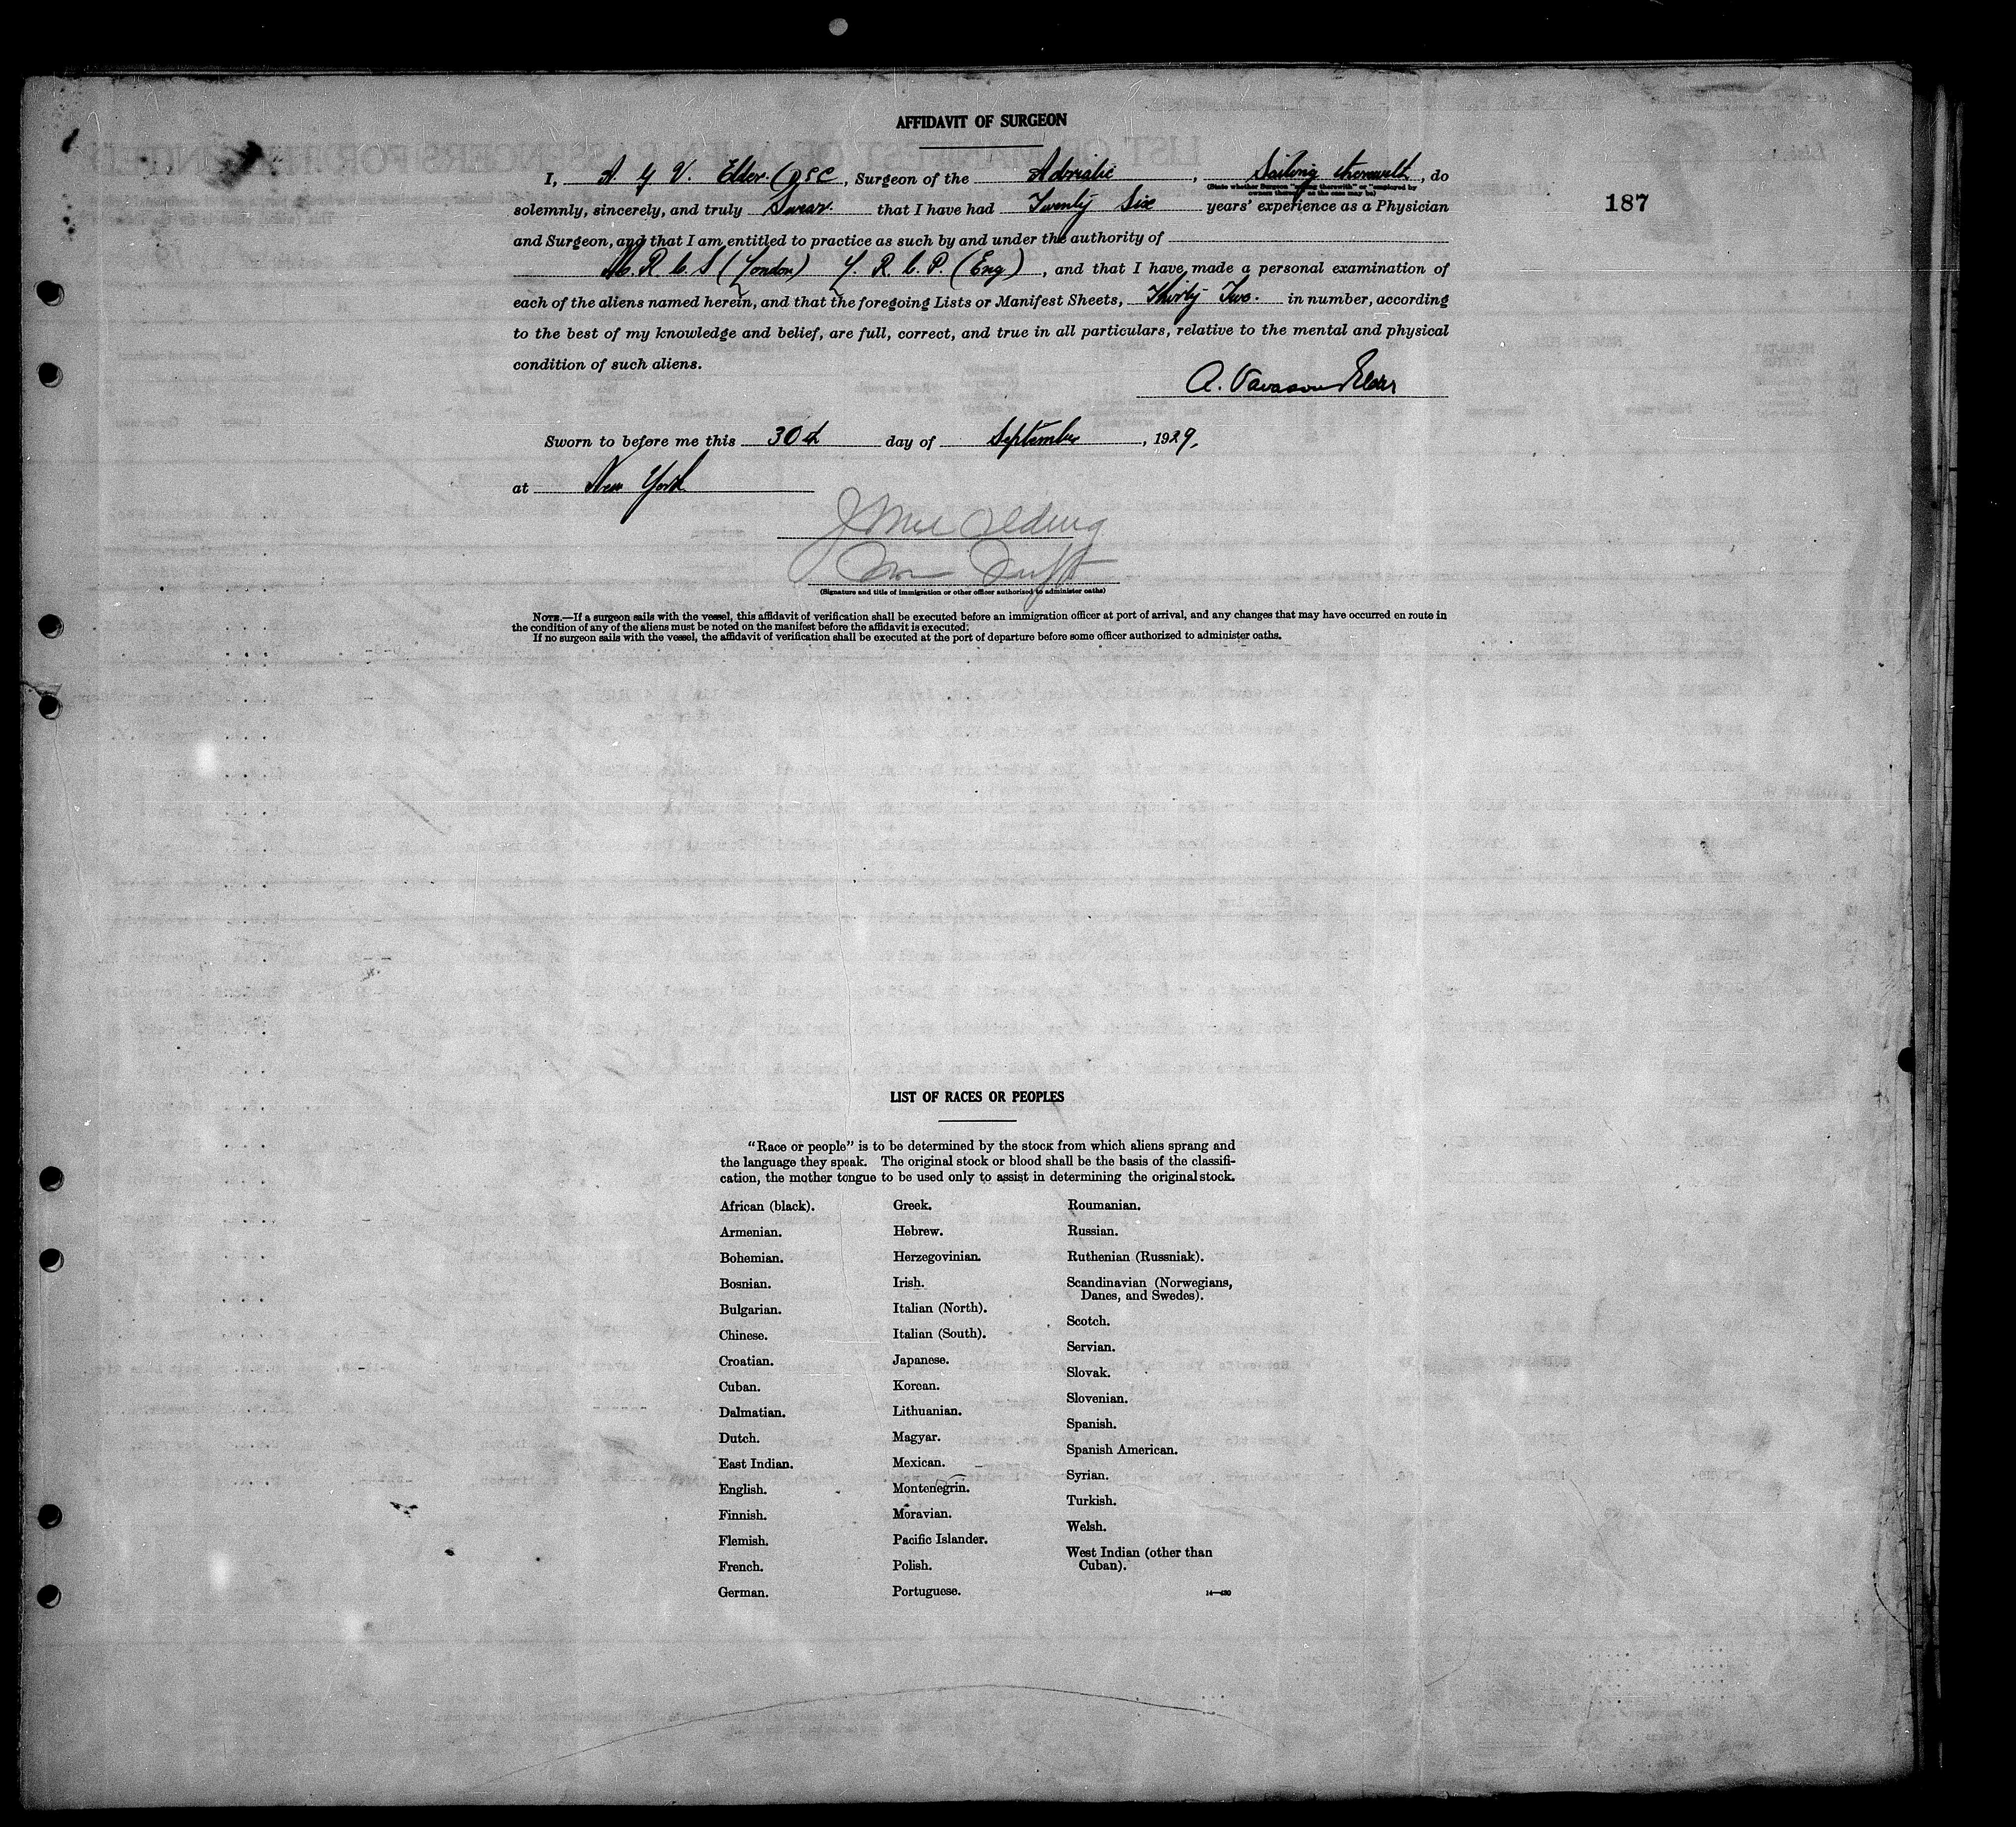 AFFIDAVIT OF SURGEON
187
I, A G V. Elder. (DSC, Surgeon of the Adriatic, Sailing therewith, do
(State whether Surgeon "sailing therewith" or "employed by
owners thereof," as the case may be)
solemnly, sincerely, and truly Swear. that I have had Twenty Six years' experience as a Physician
and Surgeon, and that I am entitled to practice as such by and under the authority of
M. R C. S (London) L. R. C. P. (Eng), and that I have made a personal examination of
each of the aliens named herein, and that the foregoing Lists or Manifest Sheets, Thirty Two. in number, according
to the best of my knowledge and belief, are full, correct, and true in all particulars, relative to the mental and physical
condition of such aliens.
A. Vavasour Elder
Sworn to before me this 30th day of September, 1929,
at New York
(Signature and title of immigration or other officer authorized to administer oaths)
NOTE.—If a surgeon sails with the vessel, this affidavit of verification shall be executed before an immigration officer at port of arrival, and any changes that may have occurred en route in
the condition of any of the aliens must be noted on the manifest before the affidavit is executed.
If no surgeon sails with the vessel, the affidavit of verification shall be executed at the port of departure before some officer authorized to administer oaths.
LIST OF RACES OR PEOPLES
"Race or people" is to be determined by the stock from which aliens sprang and
the language they speak. The original stock or blood shall be the basis of the classifi-
cation, the mother tongue to be used only to assist in determining the original stock.
African (black).
Armenian.
Bohemian.
Bosnian.
Bulgarian.
Chinese.
Croatian.
Cuban.
Dalmatian.
Dutch.
East Indian.
English.
Finnish.
Flemish.
French.
German.
Greek.
Hebrew.
Herzegovinian.
Irish.
Italian (North).
Italian (South).
Japanese.
Korean.
Lithuanian.
Magyar.
Mexican.
Montenegrin.
Moravian.
Pacific Islander.
Polish.
Portuguese.
Roumanian.
Russian.
Ruthenian (Russniak).
Scandinavian (Norwegians,
Danes, and Swedes).
Scotch.
Servian.
Slovak.
Slovenian.
Spanish.
Spanish American.
Syrian.
Turkish.
Welsh.
West Indian (other than
Cuban).